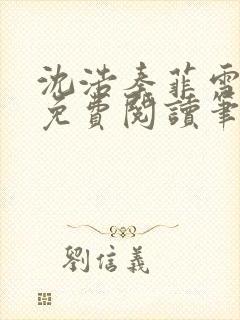 沈浩秦菲雪
免費閱讀筆
劉信義